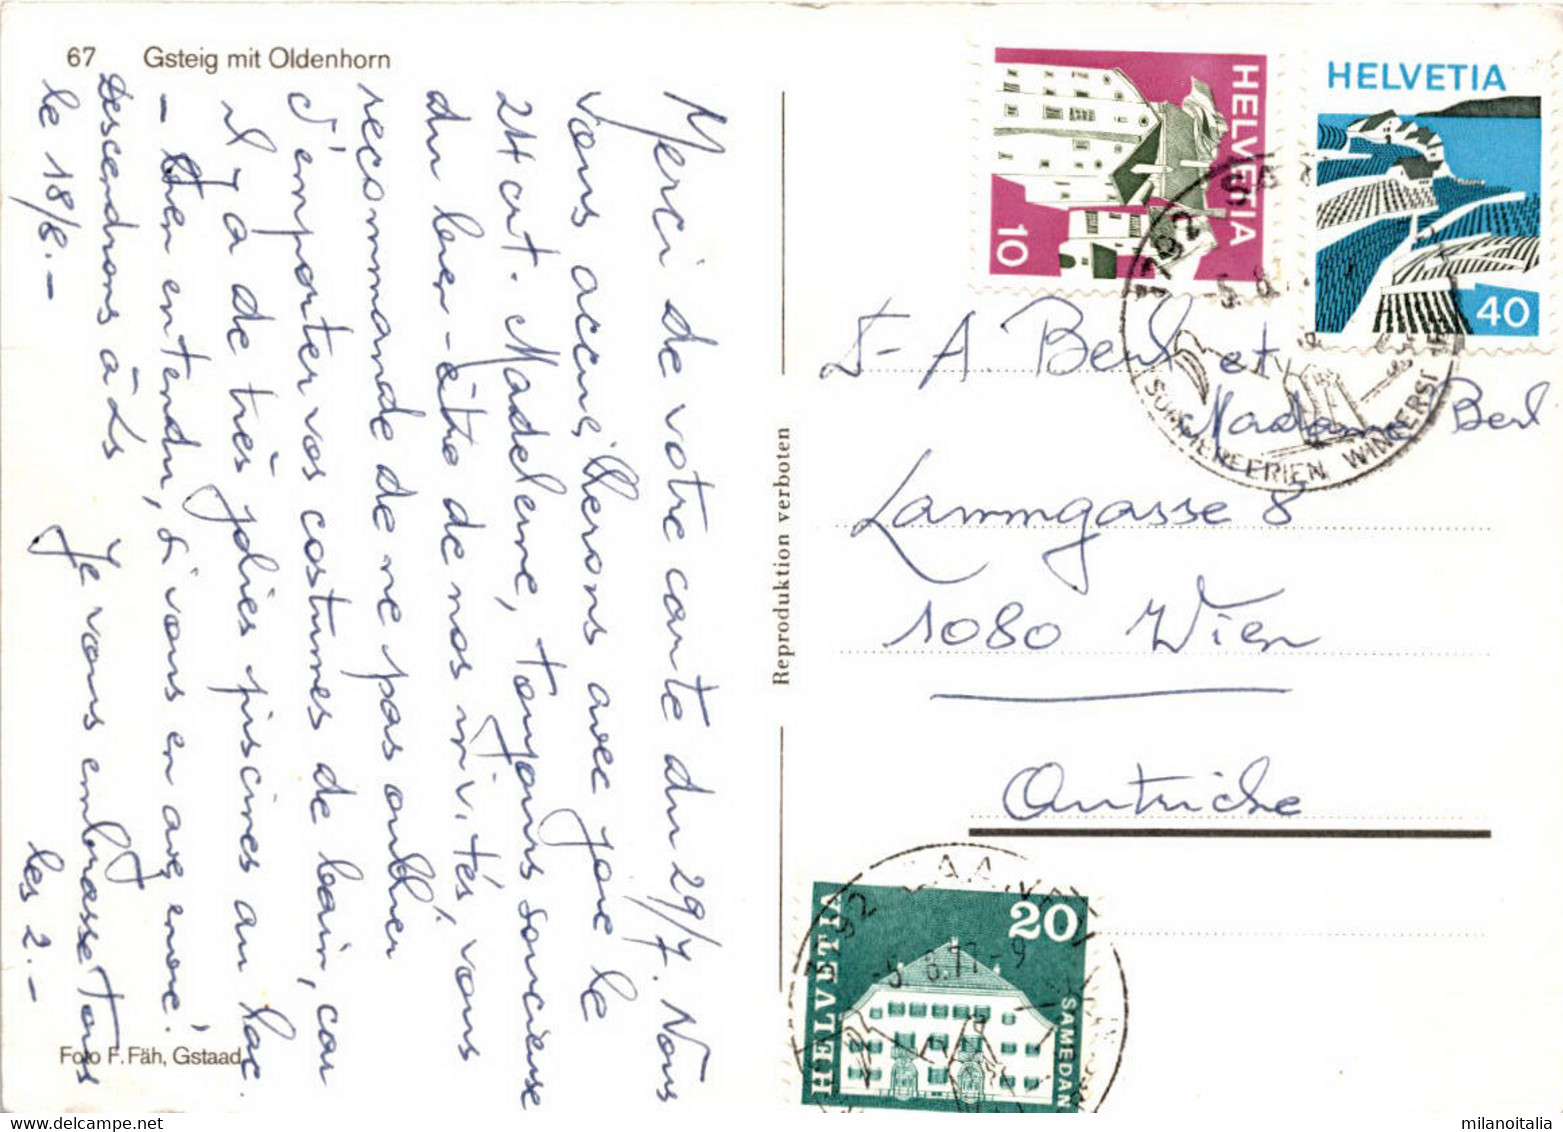 67 Gsteig mit Oldenhorn
Merci de votre carte du 29/7. Nous
vous accueillerons avec joie le
24 ct. Madeleine, toujours soucieuse
du bien-être de nos invités, vous
recommande de ne pas oublier
d'emporter vos costumes de bain, car
il y a de très jolies piscines au lac.
– Bien entendu, si vous en avez envie.
Descendrons à Ls
le 18/8.– Je vous embrasse tous
les 2.–
Foto F. Fäh, Gstaad
Reproduktion verboten
HELVETIA
10
HELVETIA
40
SOMMERFERIEN WINTERSP
A. Berl et
Madame Berl
Lammgasse 8
1080 Wien
Autriche
HELVETIA
20
SAMEDAN
-5.8.77-9
milanoitalia